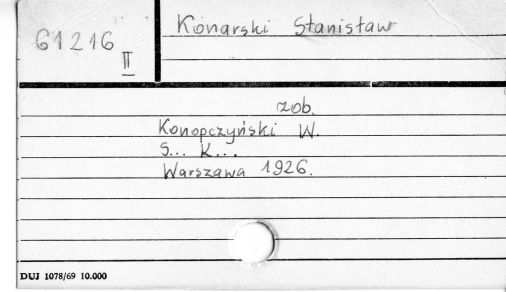 Konarski Stanisław
61216
II
zob.
Konopczyński W.
S... K...
Warszawa 1926.
DUJ 1078/69 10.000